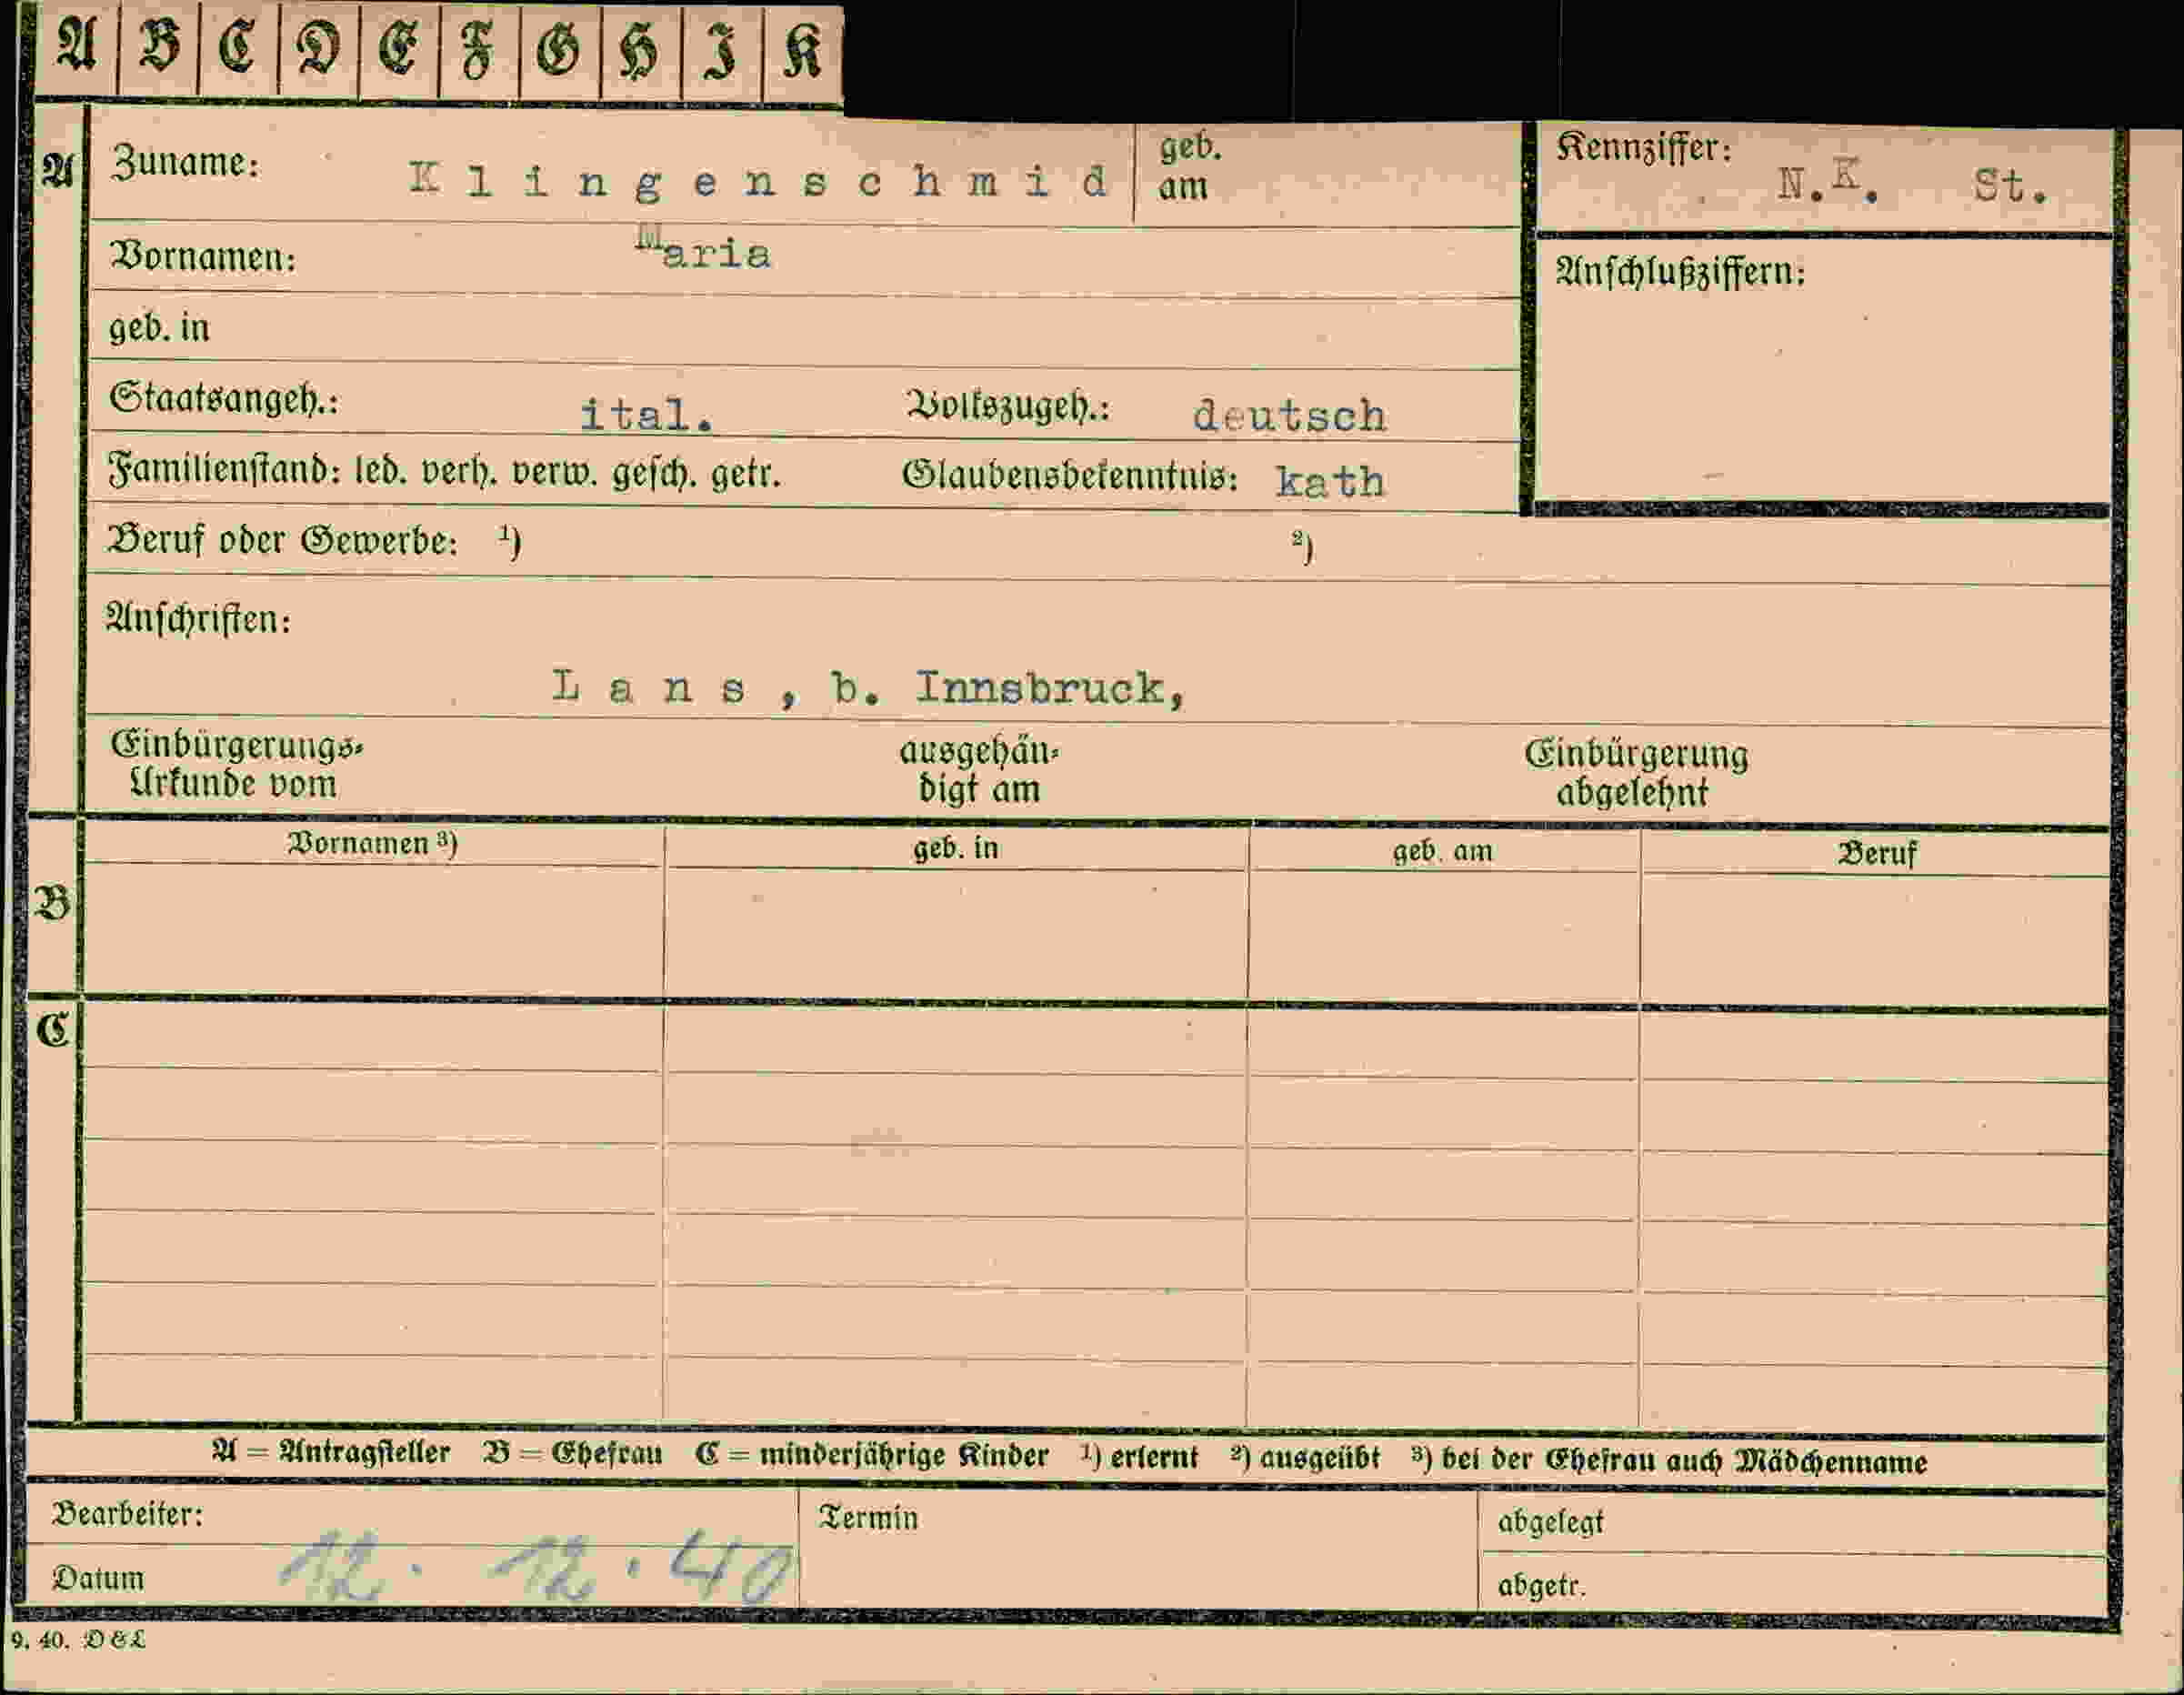 A B C D E F G H I K
A Zuname: Klingenschmid geb. am Kennziffer: N.K. St.
Vornamen: Maria
Anschlußziffern:
geb. in
Staatsangeh.: ital. Volkszugeh.: deutsch
Familienstand: led. verh. verw. gesch. getr. Glaubensbekenntnis: kath
Beruf oder Gewerbe: 1) 2)
Anschriften:
Lans, b. Innsbruck,
Einbürgerungs- ausgehän- Einbürgerung
Urkunde vom digt am abgelehnt
Vornamen 3) geb. in geb. am Beruf
B
C
A = Antragsteller B = Ehefrau C = minderjährige Kinder 1) erlernt 2) ausgeübt 3) bei der Ehefrau auch Mädchenname
Bearbeiter: Termin abgelegt
Datum 12. 12. 40 abgetr.
9. 40. D & L